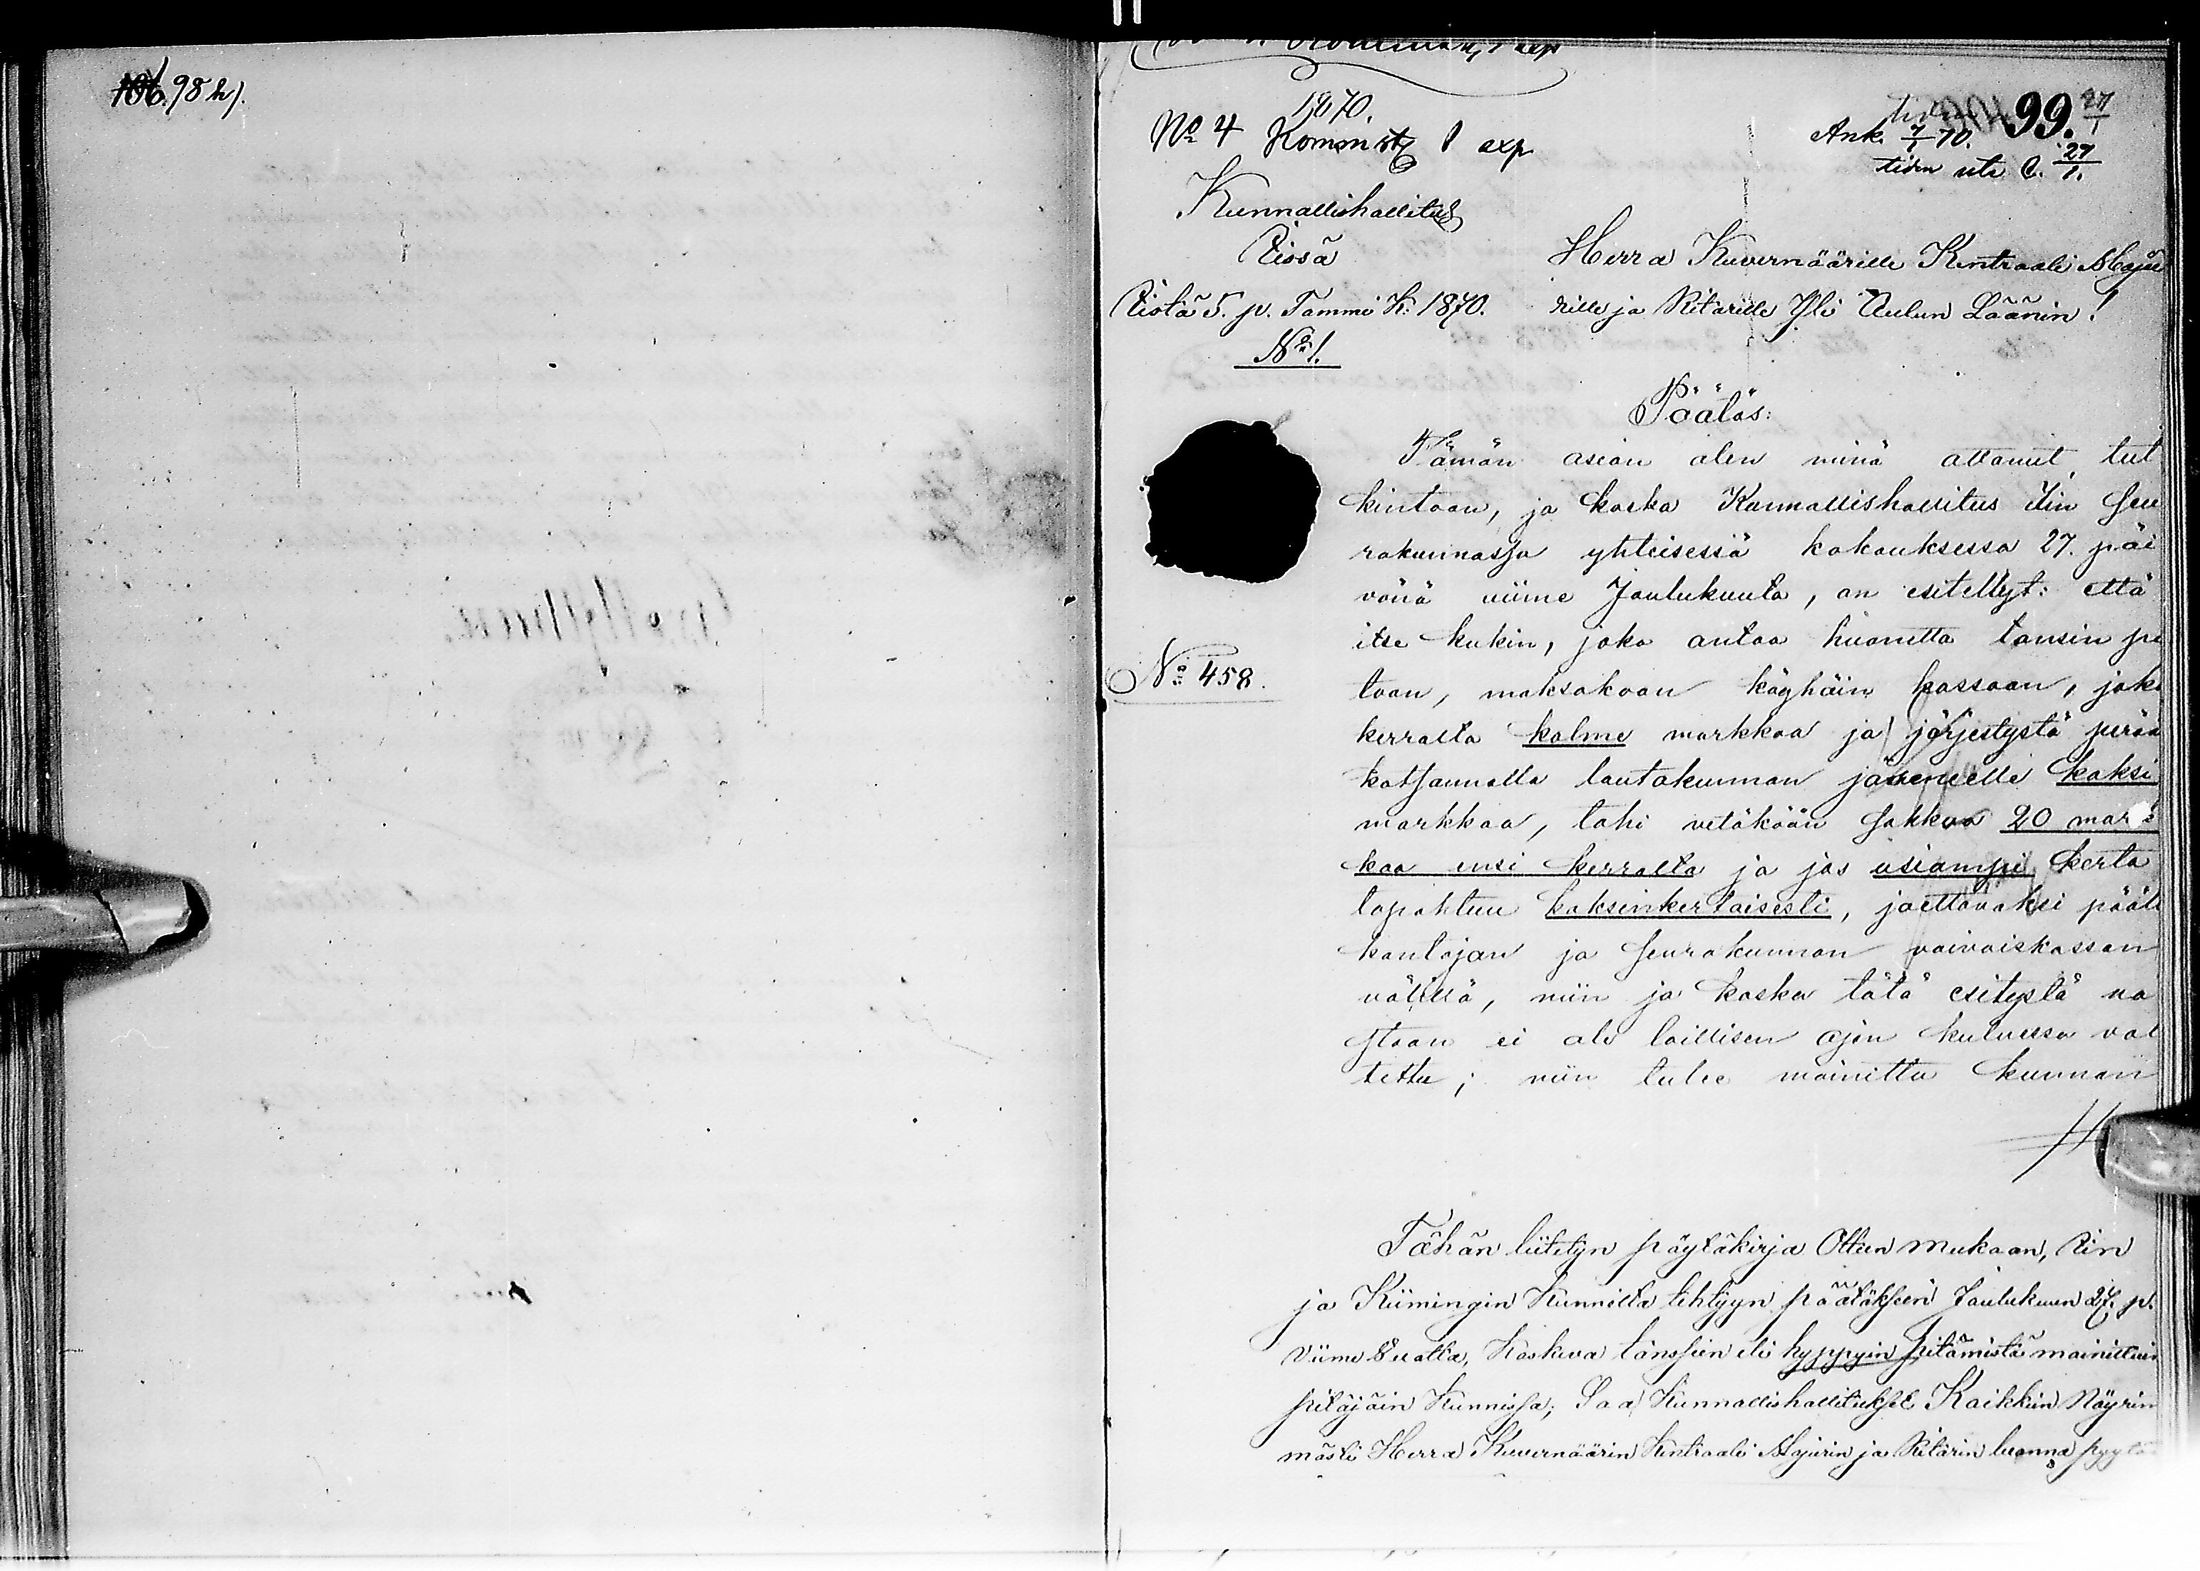 98 b).
1870.
No 4 Kommst 1 exp
99.
Ank. 7/1 70.
27/1
Kunnallishallitus
Iissä
Iistä 5. p. Tammi K: 1870.
No 1.
Herra Kuvernäärille Kentraali Maju
rille ja Ritarille Yli Oulun Läänin!
Päätös:
Tämän asian olen minä ottanut tut
kintoon, ja koska Kunnallishallitus Iin seu
rakunnassa yhteisessä kokouksessa 27. päi
vänä viime Joulukuuta, on esitellyt: että
itse kukin, joka antaa huonetta tansin pi
toon, maksakoon köyhäin kassaan, joka
No 458.
kerralta kolme markkaa ja järjestystä perään
katsannolla lautakunnan jäsenelle kaksi
markkaa, tahi vetäköön sakkoa 20 mark
kaa ensi kerralta ja jos usiampi kerta
tapahtuu kaksinkertaisesti, jaettavaksi päälle
kantajan ja seurakunnan vaivaiskassan
välillä, niin ja koska tätä esitystä va
staan ei ole laillisen ajan kuluessa val
tettu; niin tulee mainittu kunnan
Tähän liitetyn pöytäkirja Otteen mukaan, Iin
ja Kiimingin Kunnilta tehtyyn päätökseen Joulukuun 27. p.
viime Vuotta, Koskeva tanssien eli hyppyin pitämistä mainittuin
pitäjäin Kunnissa; Saa Kunnallishallitukset Kaikkein Nöyrim
mästi Herra Kuvernäärin Kentraali Majurin ja Ritarin luonna pyytä